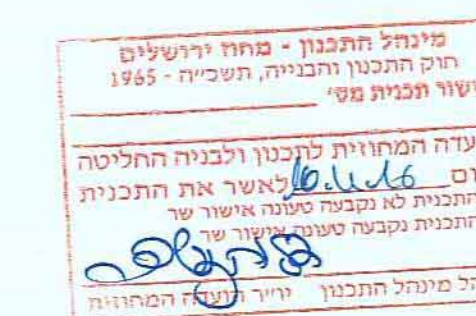 מינהל התכנון - מחוז ירושלים
חוק התכנון והבנייה, תשכ״ה - 1965
ישור תכנית מס׳
עדה המחוזית לתכנון ולבניה החליטה
ום 16.11.16 לאשר את התכנית
התכנית לא נקבעה טעונה אישור שר
התכנית נקבעה טעונה אישור שר
הל מינהל התכנון יו״ר הועדה המחוזית